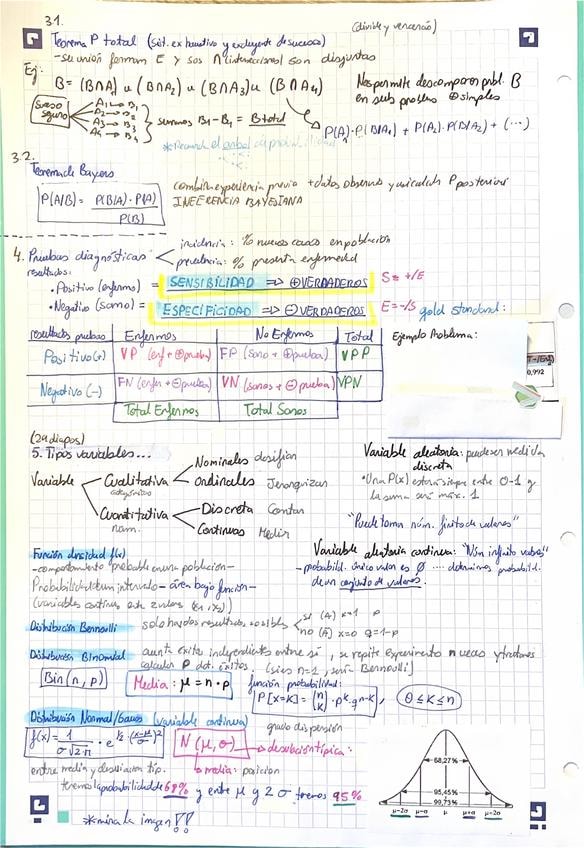 3.1.
(divide y vencerás)
Teorema P total (sist. exhaustivo y excluyente de sucesos)
-su unión forman E y sus ∩ intersecciones son disjuntas
Ej:
B = (B∩A₁) ∪ (B∩A₂) ∪ (B∩A₃) ∪ (B∩A₄)
Nos permite descomponer probl. B
en subproblem ⊕ simples
Suceso
seguro
A₁→B₁
A₂→B₂
A₃→B₃
A₄→B₄
sumamos B₁-B₄ = B total
P(A₁)·P(B/A₁) + P(A₂)·P(B/A₂) + (...)
*Recuerda el arbol de probabilidad
3.2.
Teorema de Bayes
P(A/B) = P(B/A)·P(A) / P(B)
combin experiencia previa + datos observados y calcula P posteriori
INFERENCIA BAYESIANA
4. Pruebas diagnósticas
incidencia: % nuevos casos en población
prevalencia: % presenta enfermedad
resultados:
·Positivo (enfermo) = SENSIBILIDAD => ⊕ VERDADEROS S= +/E
·Negativo (sano) = ESPECIFICIDAD => ⊖ VERDADEROS E= -/S gold standard:
resultados pruebas Enfermos No Enfermos Total
Ejemplo Problema:
Positivo (+) VP (enf + ⊕prueba) FP (sano + ⊕prueba) VPP
0,992
Negativo (-) FN (enfer + ⊖prueba) VN (sanos + ⊖prueba) VPN
Total Enfermos Total Sanos
(29 diapos)
5. Tipos variables...
Variable
Cualitativa
categóricas
Nominales clasifican
Ordinales Jerarquizan
Cuantitativa
num.
Discreta Contar
Continuas Medir
Variable aleatoria: puede ser medida
discreta
·Una P(x) estará siempre entre 0-1 y
la suma será máx. 1
"Puede tomar núm. finito de valores"
Función densidad f(x)
-comportamiento probable en una población-
Probabilidad de un intervalo - área bajo función-
(variables continuas, entre 2 valores (x₁, x₂))
Variable aleatoria continua: "Núm infinito valores"
-probabilid. único valor es ∅ ... determinas probabilid.
de un conjunto de valores.
Distribución Bernoulli solo hay dos resultados posibles
si (A) x=1 p
no (Ā) x=0 q=1-p
Distribución Binomial cuenta éxitos independientes entre sí, se repite experimento n veces y tratamos
calcular P det. éxitos. (si es n=1, será Bernoulli)
Bin (n, p)
Media: μ = n·p
función probabilidad:
P[x=k] = (n k)·pᵏ·qⁿ⁻ᵏ, 0≤k≤n
Distribución Normal/Gauss (variable continua)
f(x) = 1/σ√2·π · e^½·(x-μ/σ)²
N (μ, σ)
grado dispersión
desviación típica:
media: posición
entre media y desviación tip.
tenemos la probabilidad de 68% y entre μ y 2σ tenemos 95%
*mira la imagen!!
68,27%
95,45%
99,73%
μ-2σ μ-σ μ μ+σ μ+2σ